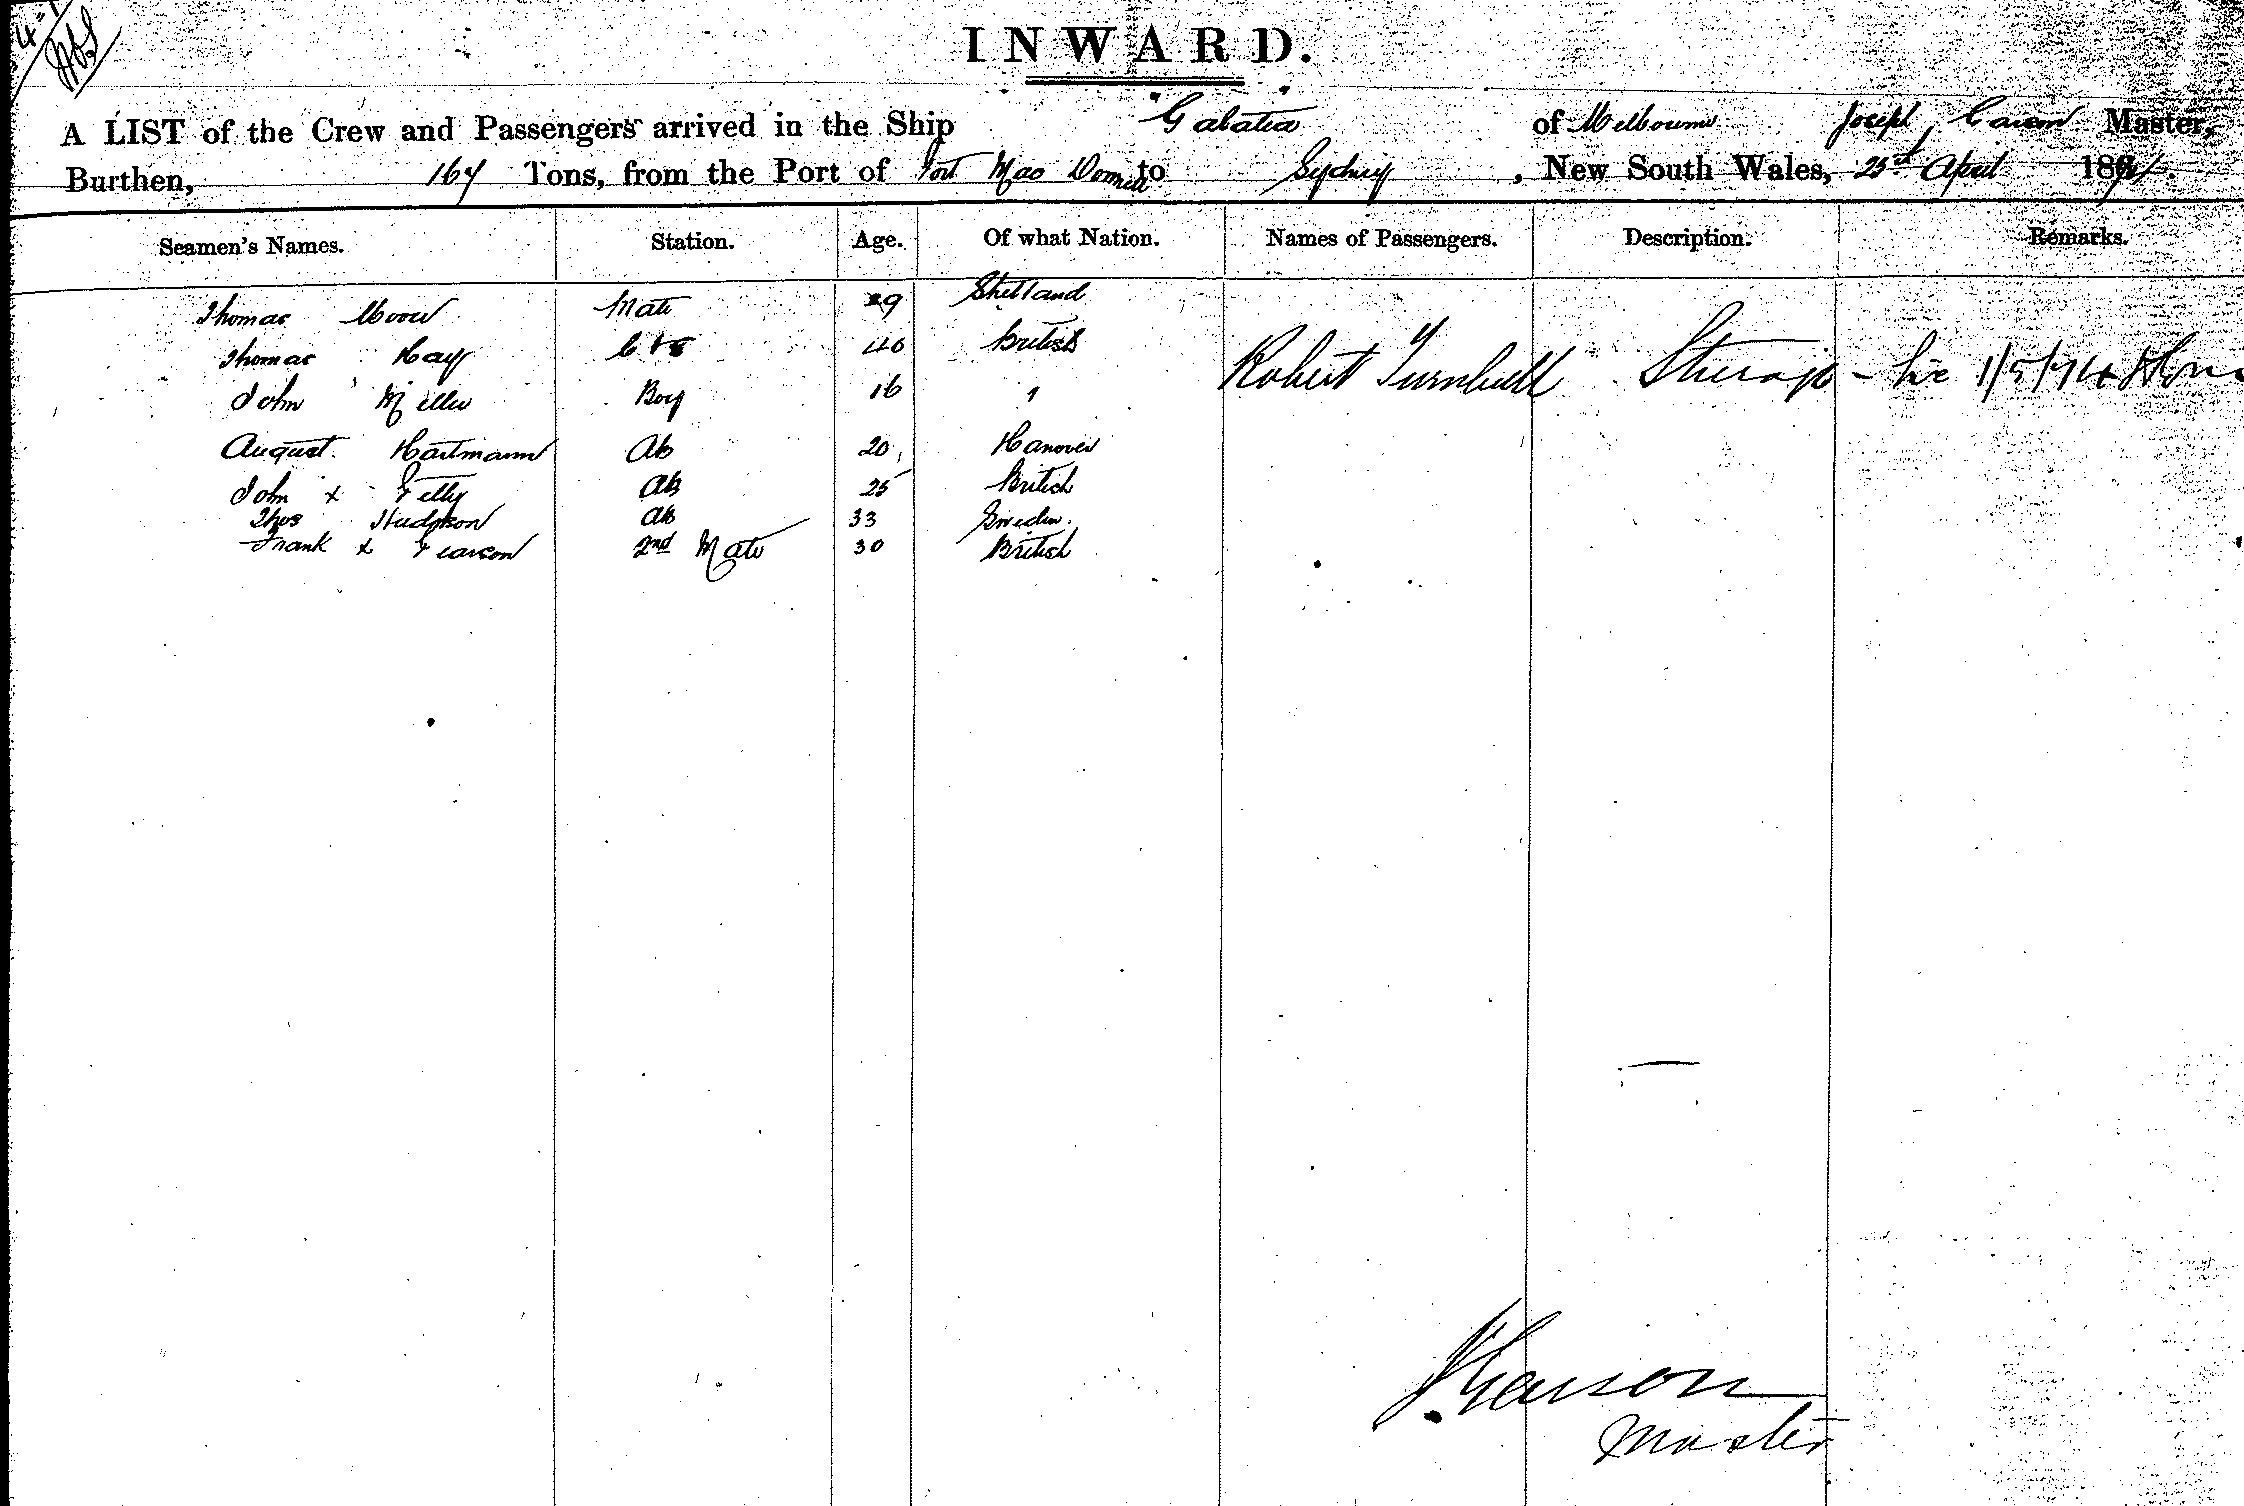 INWARD.
A LIST of the Crew and Passengers arrived in the Ship Galatea of Melbourne Joseph Carson Master,
Burthen, 164 Tons, from the Port of Port Mac Donnell to Sydney, New South Wales, 25th April 1874.
Seamen's Names. Station. Age. Of what Nation. Names of Passengers. Description. Remarks.
Thomas Moore Mate 29 Shetland
Thomas Hay C & S 40 British
Robert Turnbull Steerage 1/5/74
John Miller Boy 16 "
August Hartmann Ab 20 Hanover
John + Ab 25 British
Thos Hudson Ab 33 Sweden.
Frank + Pearson 2nd Mate 30 British
J Carson
Master